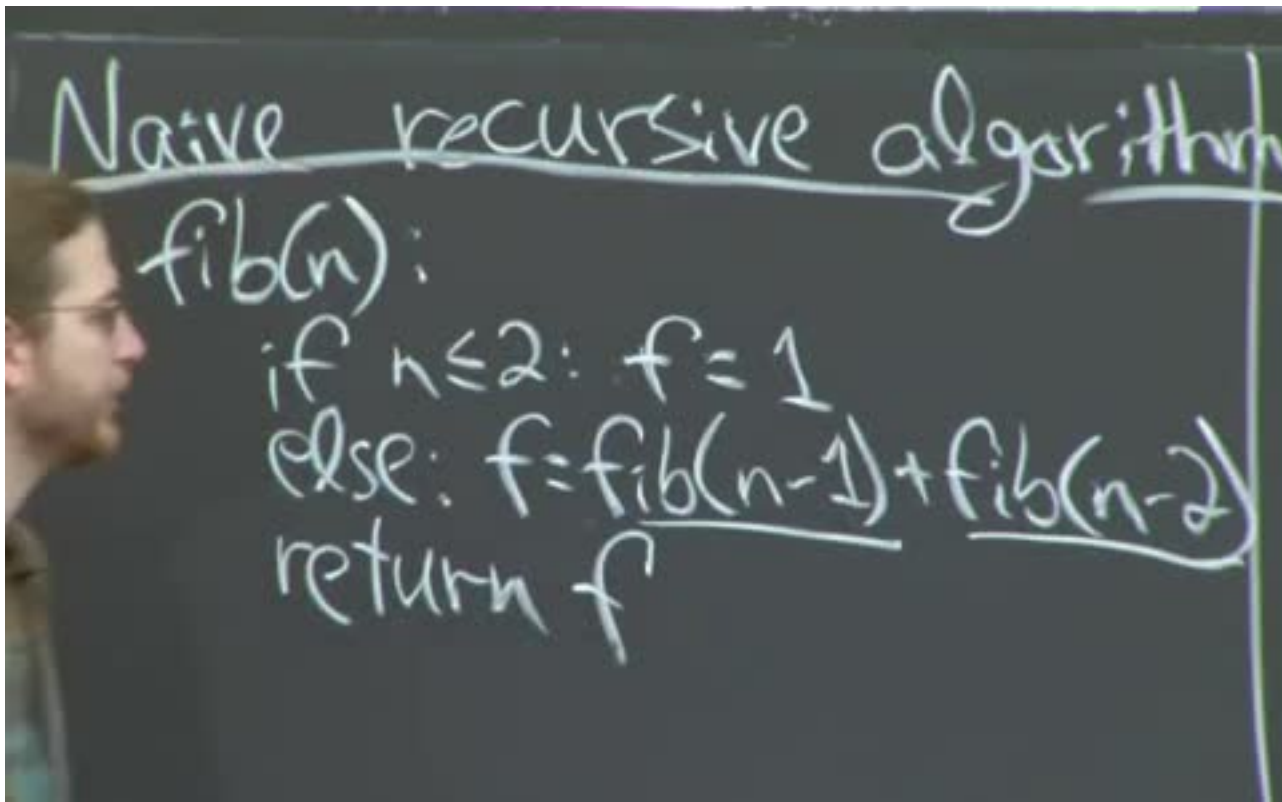 Naive recursive algorithm
fib(n):
if n≤2: f = 1
else: f=fib(n-1)+fib(n-2)
return f